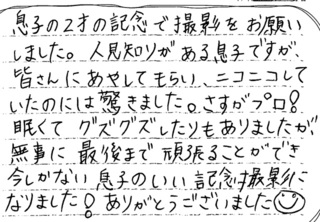 息子の2才の記念で撮影をお願い
しました。人見知りがある息子ですが、
皆さんにあやしてもらい、ニコニコして
いたのには驚きました。さすがプロ!
眠くてグズグズしたりもありましたが、
無事に最後まで頑張ることができ
今しかない息子のいい記念撮影に
なりました!ありがとうございました